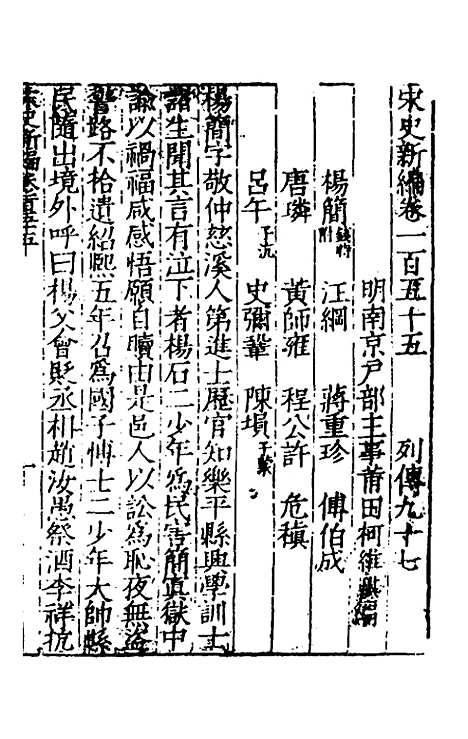 宋史新編卷一百五十五　列傳九十七
明南京戶部主事莆田柯維騏編
楊簡錢時附　汪綱　蔣重珍　傅伯成
唐璘　黃師雍　程公許　危稹
呂午子沆　史彌鞏　陳塤子蒙
楊簡字敬仲慈溪人第進士歷官知樂平縣興學訓士
諸生聞其言有泣下者楊石二少年爲民害簡寘獄中
諭以禍福咸感悟願自贖由是邑人以訟爲恥夜無盜
警路不拾遺紹熙五年召爲國子博士二少年大帥縣
民隨出境外呼曰楊父會貶丞相趙汝愚祭酒李祥抗
宋史新編卷一百五十五　一